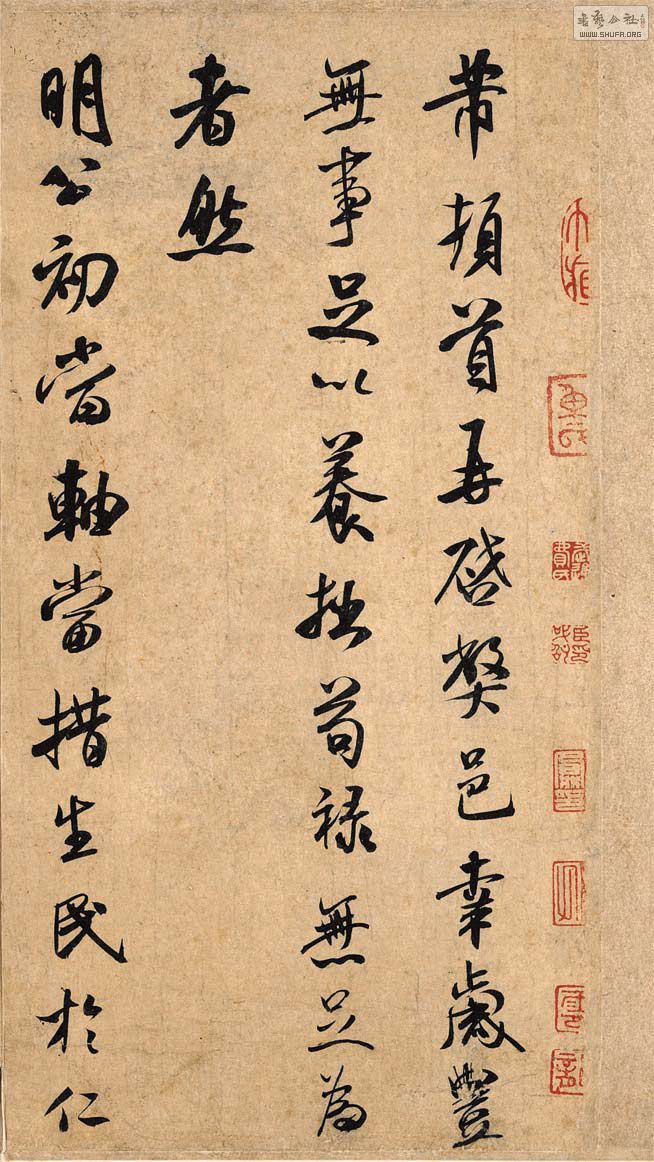 芾頓首再啓弊邑幸歲豐
無事足以養拙苟禄無足為
者然
明公初當軸當措生民於仁
書藝公社
WWW.SHUFA.ORG